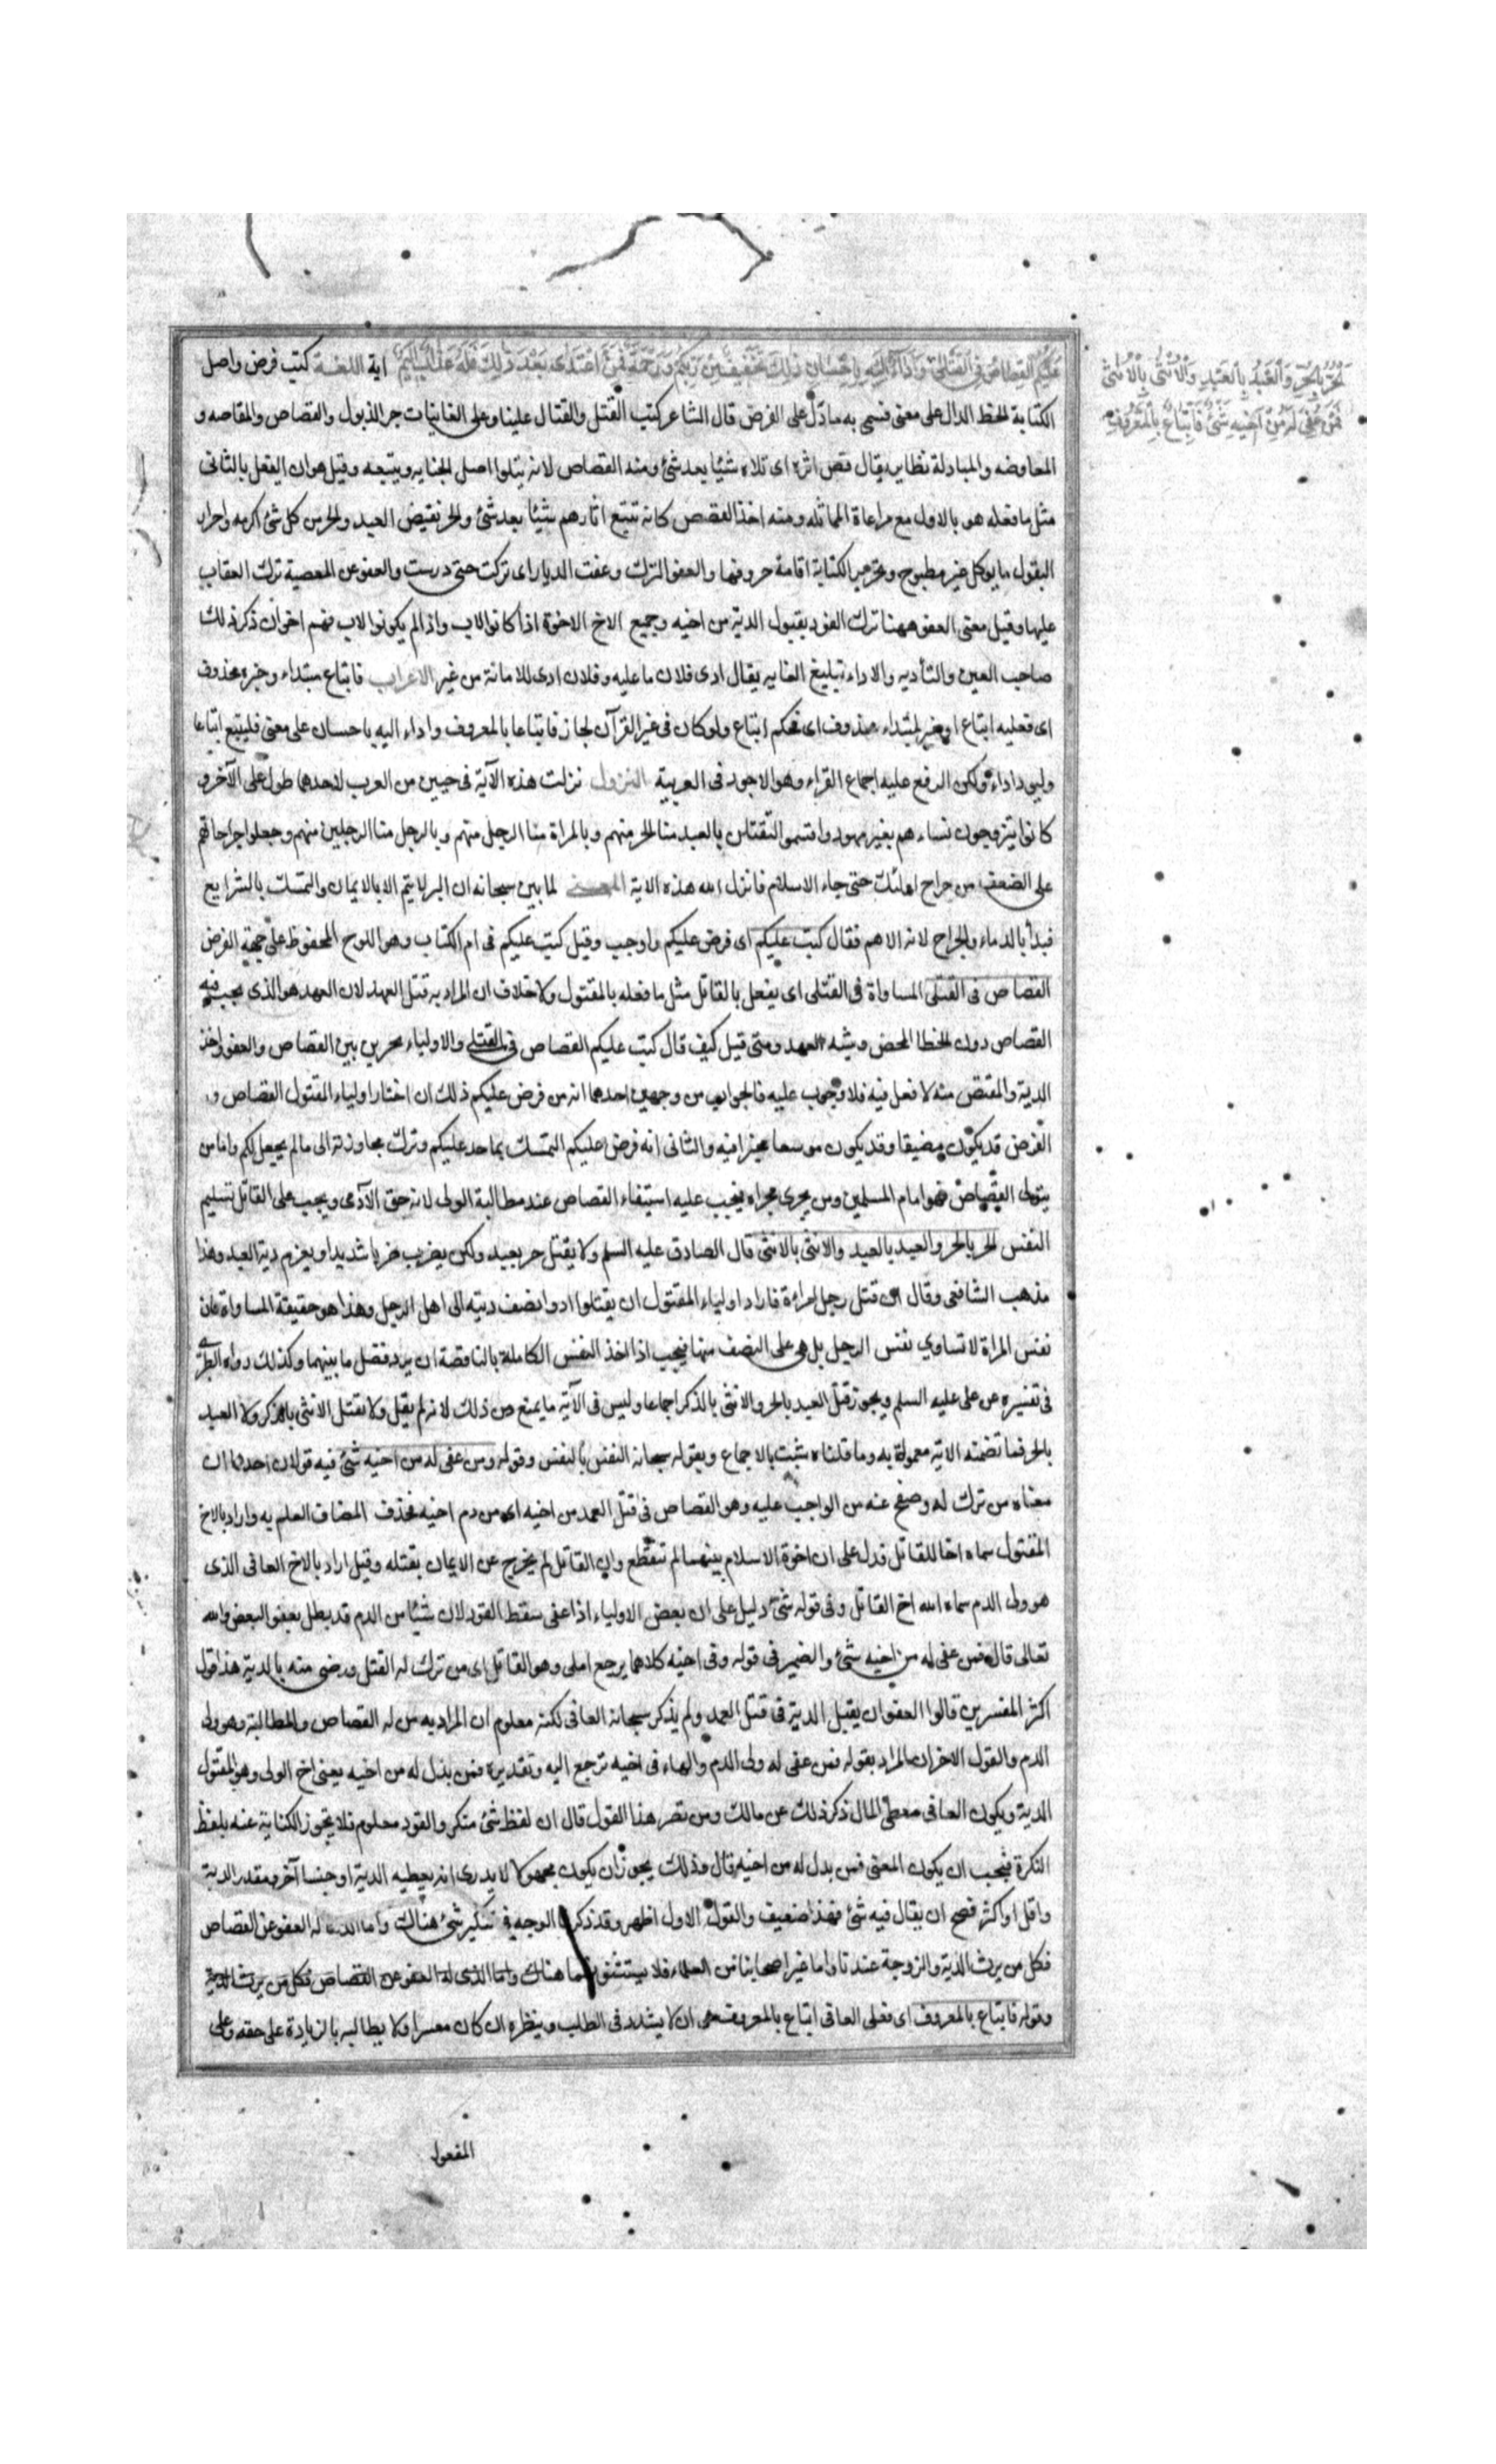 عليكم القصاص في القتلى واداء اليه باحسان ذلك تخفيف من ربكم ورحمة فمن اعتدى بعد ذلك فله عذاب اليم اية اللغة كتب فرض واصل
الحر بالحر والعبد بالعبد والانثى بالانثى
فمن عفى له من اخيه شئ فاتباع بالمعروف
الكتابة الخط الدال على معنى فسمى به ما دل على الفرض قال الشاعر كتب القتل والقتال علينا وعلى الغانيات جر الذيول والقصاص والمقاصه و
المعاوضه والمبادلة نظاير يقال قص اثره اى تلاه شيئا بعد شئ ومنه القصاص لانه يتلوا اصل الجنايه ويتبعه وقيل هو ان يفعل بالثانى
مثل ما فعله هو بالاول مع مراعاة المماثله ومنه اخذ القصص كانه تتبع اثارهم شيئا بعد شئ والحر نقيض العبد والحر من كل شئ اكرمه واحرار
البقول ما يوكل غير مطبوخ وتحرير الكتابة اقامة حروفها والعفو الترك وعفت الديار اى تركت حتى درست والعفو عن المعصية ترك العقاب
عليها وقيل معنى العفو ههنا ترك القود بقبول الدية من اخيه وجميع الاخ الاخوة اذا كانوا لاب واذا لم يكونوا لاب فهم اخوان ذكر ذلك
صاحب العين والتأديه والاداء تبليغ الغايه يقال ادى فلان ما عليه وفلان ادى للامانة من غيره الاعراب فاتباع مبتداء وخبره محذوف
اى فعليه اتباع او خبر لمبتداء محذوف اى فحكم اتباع ولو كان فى غير القرآن لجاز فاتباعا بالمعروف واداء اليه باحسان على معنى فليتبع اتباعا
وليود اداء ولكن الرفع عليه اجماع القراء وهو الاجود فى العربية النزول نزلت هذه الآية فى حيين من العرب لاحدهما طول على الآخر و
كانوا يتزوجون نساءهم بغير مهور واقسموا لنقتلن بالعبد منا الحر منهم وبالمراة منا الرجل منهم وبالرجل منا الرجلين منهم وجعلوا جراحاتهم
على الضعف من جراح اولئك حتى جاء الاسلام فانزل الله هذه الاية المعنى لما بين سبحانه ان البر لا يتم الا بالايمان والتمسك بالشرايع
فبدأ بالدماء والجراح لانه الاهم فقال كتب عليكم اى فرض عليكم واوجب وقيل كتب عليكم فى ام الكتاب وهو اللوح المحفوظ على جهة الفرض
القصاص فى القتلى المساواة فى القتلى اى يفعل بالقاتل مثل ما فعله بالمقتول ولا خلاف ان المراد به قتل العمد لان العمد هو الذى يجب فيه
القصاص دون الخطا المحض وشبه العمد ومتى قيل كيف قال كتب عليكم القصاص فى القتلى والاولياء مخيرين بين القصاص والعفو واخذ
الدية والمقتص منه لا فعل فيه فلا وجوب عليه فالجواب من وجهين احدهما انه من فرض عليكم ذلك ان اختار اولياء المقتول القصاص و
الفرض قد يكون مضيقا وقد يكون موسعا مخيرا فيه والثانى انه فرض عليكم التمسك بما حد عليكم وترك مجاوزته الى ما لم يجعل لكم واما من
يتولى القصاص فهو امام المسلمين ومن يجرى مجراه فيجب عليه استيفاء القصاص عند مطالبة الولى لانه حق الآدمى ويجب على القاتل تسليم
النفس الحر بالحر والعبد بالعبد والانثى بالانثى قال الصادق عليه السلم ولا يقتل حر بعبد ولكن يضرب ضربا شديدا ويغرم دية العبد وهذا
مذهب الشافعى وقال ان قتل رجل امراءة فاراد اولياء المقتول ان يقتلوا ادوا نصف ديته الى اهل الرجل وهذا هو حقيقة المساواة فان
نفس المراة لا تساوي نفس الرجل بل هى على النصف منها فيجب اذا اخذ النفس الكاملة بالناقصة ان يرد فضل ما بينهما وكذلك رواه الطبرى
فى تفسيره عن على عليه السلم ويجوز قتل العبد بالحر والانثى بالذكر اجماعا وليس فى الآية ما يمنع من ذلك لانه لم يقل ولا تقتل الانثى بالذكر ولا العبد
بالحر فما تضمنه الاية معمول به وما قلناه مثبت بالاجماع وبقوله سبحانه النفس بالنفس وقوله ومن عفى له من اخيه شئ فيه قولان احدهما ان
معناه من ترك له وصفح عنه من الواجب عليه وهو القصاص فى قتل العمد من اخيه اى من دم اخيه فحذف المضاف للعلم به واراد بالاخ
المقتول سماه اخا للقاتل فدل على ان اخوة الاسلام بينهما لم تنقطع وان القاتل لم يخرج عن الايمان بقتله وقيل اراد بالاخ العافى الذى
هو ولى الدم سماه الله اخ القاتل وفى قوله شئ دليل على ان بعض الاولياء اذا عفى سقط القود لان شيئا من الدم قد بطل بعفو البعض والله
تعالى قال فمن عفى له من اخيه شئ والضمير فى قوله وفى اخيه كلاهما يرجع الى من وهو القاتل اى من ترك له القتل ورضى منه بالدية هذا قول
اكثر المفسرين قالوا العفو ان يقبل الدية فى قتل العمد ولم يذكر سبحانه العافى لكنه معلوم ان المراد به من له القصاص والمطالبة وهو ولى
الدم والقول الاخر ان المراد بقوله فمن عفى له ولى الدم والهاء فى اخيه ترجع اليه وتقديره فمن بذل له من اخيه يعنى اخ الولى وهو المقتول
الدية ويكون العافى معطى المال ذكر ذلك عن مالك ومن نصر هذا القول قال ان لفظ شئ منكر والقود معلوم فلا يجوز الكناية عنه بلفظ
النكرة فيجب ان يكون المعنى فمن بذل له من اخيه قال وذلك يجوز ان يكون مجهولا لا يدرى انه يعطيه الدية او جنسا آخر ومقدر الدية
واقل او اكثر فصح ان يقال فيه شئ فهذا ضعيف والقول الاول اظهر وقد ذكر الوجه فى تنكير شئ هناك واما الذى له العفو عن القصاص
فكل من يرث الدية والزوجة عندنا واما غير اصحابنا من العلماء فلا يستثنونهما هناك واما الذى له العفو عن القصاص فكل من يرث الدية
وقوله فاتباع بالمعروف اى فعلى العافى اتباع بالمعروف هى ان لا يشدد فى الطلب وينظره ان كان معسرا ولا يطالبه بالزيادة على حقه وعلى
المفعول